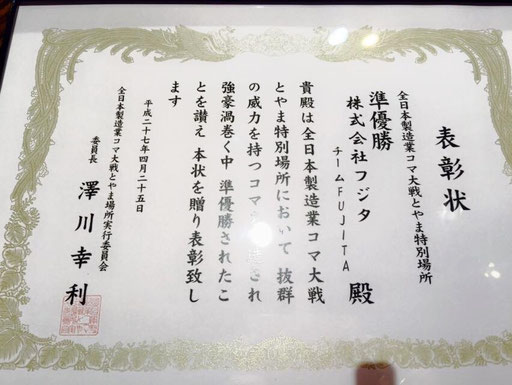 表彰状
全日本製造業コマ大戦とやま特別場所
準優勝
株式会社フジタ
チームFUJITA 殿
貴殿は全日本製造業コマ大戦
とやま特別場所において 抜群
の威力を持つコマ され
強豪渦巻く中 準優勝されたこ
とを讃え 本状を贈り表彰致し
ます
平成二十七年四月二十五日
全日本製造業コマ大戦とやま場所実行委員会
委員長 澤川幸利